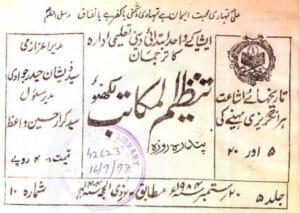 علیؑ تمہاری محبت ایمان ہے تمہاری دشمنی یا کفر ہے یا نفاق۔ رسول اعظمؐ
مدیر اعزازی
سید ذیشان حیدر جوادی
مدیر مسئول
سید کرار حسین واعظ
قیمت ۔/ ۴ روپے
ایشیا کے واحد ابتدائی دینی تعلیمی ادارہ
کا ترجمان
تنظیم المکاتب لکھنؤ
پندرہ روزہ
تاریخہائے اشاعت
ہر انگریزی مہینے کی
۵ اور ۲۰
LIBRARY
42623
16/9/97
جلد ۵
۲۰ ستمبر ۱۹۸۴ء مطابق
ذی الحجہ
شمارہ ۱۰